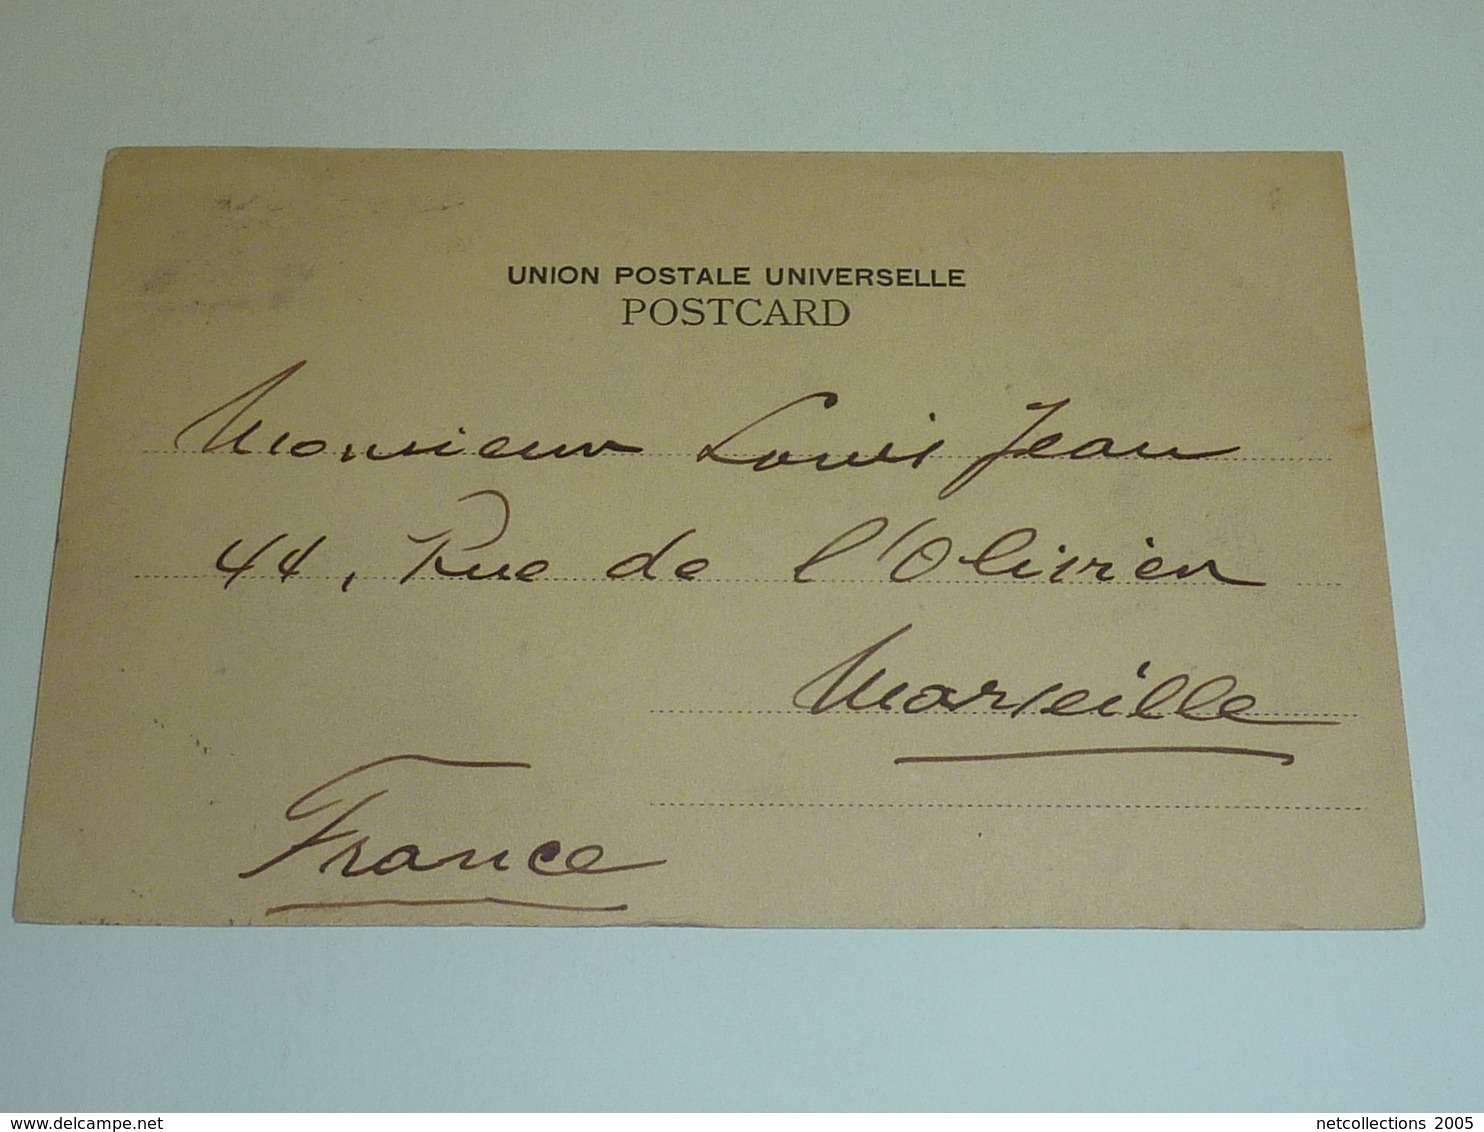 UNION POSTALE UNIVERSELLE
POSTCARD
Monsieur Louis Jean
44, Rue de l'Olivier
Marseille
France
www.delcampe.net
netcollections 2005